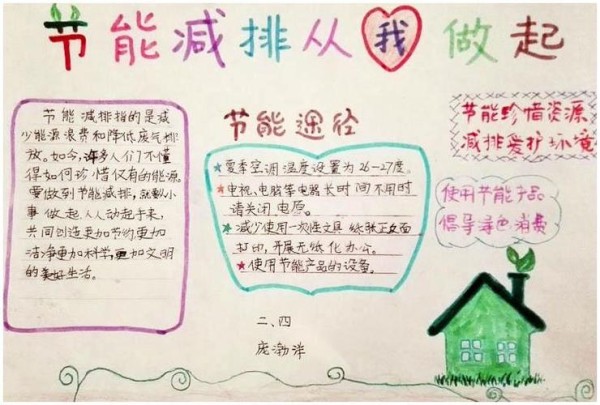 节能减排从我做起
节能减排指的是减
少能源浪费和降低废气排
放。如今,许多人们不懂
得如何珍惜仅有的能源
要做到节能减排,就从小
事做起人人动起手来,
共同创造更加节约更加
洁净更加科学,更加文明
的美好生活。
节能途径
★夏季空调温度设置为26-27度。
★电视、电脑等电器长时间不用时
请关闭电原。
★减少使用一次性文具纸张正反面
打印,开展无纸化办公。
★使用节能产品的设备。
二、四
庞渤洋
节能珍惜资源
减排爱护环境
使用节能产品
倡导绿色消费